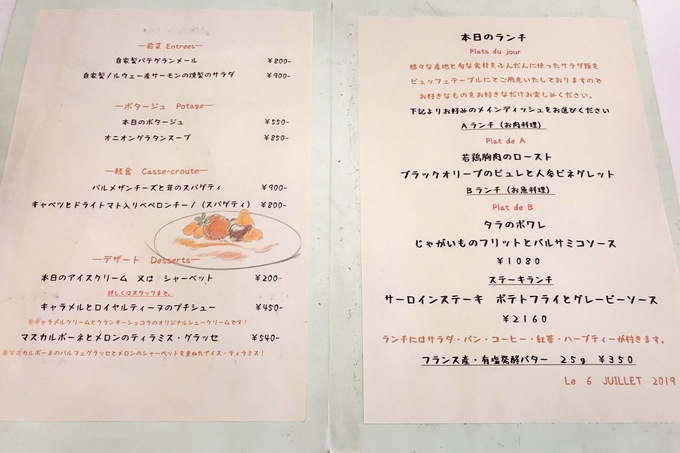 ―前菜 Entrees―
自家製パテグランメール ¥800-
自家製ノルウェー産サーモンの燻製のサラダ ¥900-
―ポタージュ Potage―
本日のポタージュ ¥550-
オニオングラタンスープ ¥850-
―軽食 Casse-croute―
パルメザンチーズと茸のスパゲティ ¥900-
キャベツとドライトマト入りペペロンチーノ(スパゲティ) ¥800-
―デザート Desserts―
本日のアイスクリーム 又は シャーベット ¥200-
詳しくはスタッフまで。
キャラメルとロイヤルティーヌのプチシュー ¥450-
※キャラメルクリームとクランキーショコラのオリジナルシュークリームです!
マスカルポーネとメロンのティラミス・グラッセ ¥540-
※マスカルポーネのパルフェグラッセとメロンのシャーベットを重ねたアイス・ティラミス!
本日のランチ
Plats du jour
様々な産地と旬な食材をふんだんに使ったサラダ類を
ビュッフェテーブルにてご用意いたしておりますので
お好きなものをお好きなだけお楽しみください。
下記よりお好みのメインディッシュをお選びください
Aランチ(お肉料理)
Plat de A
若鶏胸肉のロースト
ブラックオリーブのピュレと人参ビネグレット
Bランチ(お魚料理)
Plat de B
タラのポワレ
じゃがいものフリットとバルサミコソース
¥1080
ステーキランチ
サーロインステーキ ポテトフライとグレービーソース
¥2160
ランチにはサラダ・パン・コーヒー・紅茶・ハーブティーが付きます。
フランス産・有塩発酵バター 25g ¥350
Le 6 JUILLET 2019